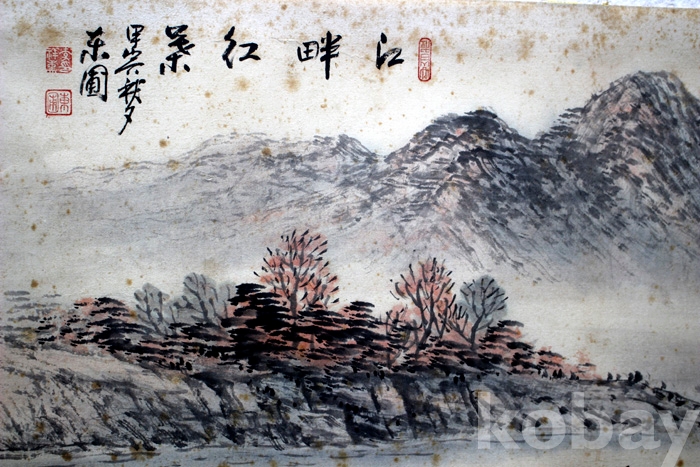 江畔紅葉
秋夕
東圃
kobay